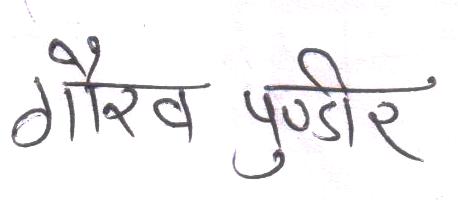 गौरव पुण्डीर